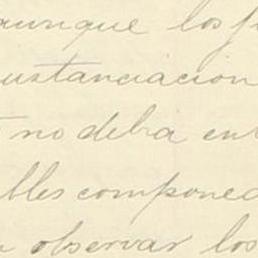 aunque los f
ustanciacion
no deba ent
bles componed
observar los